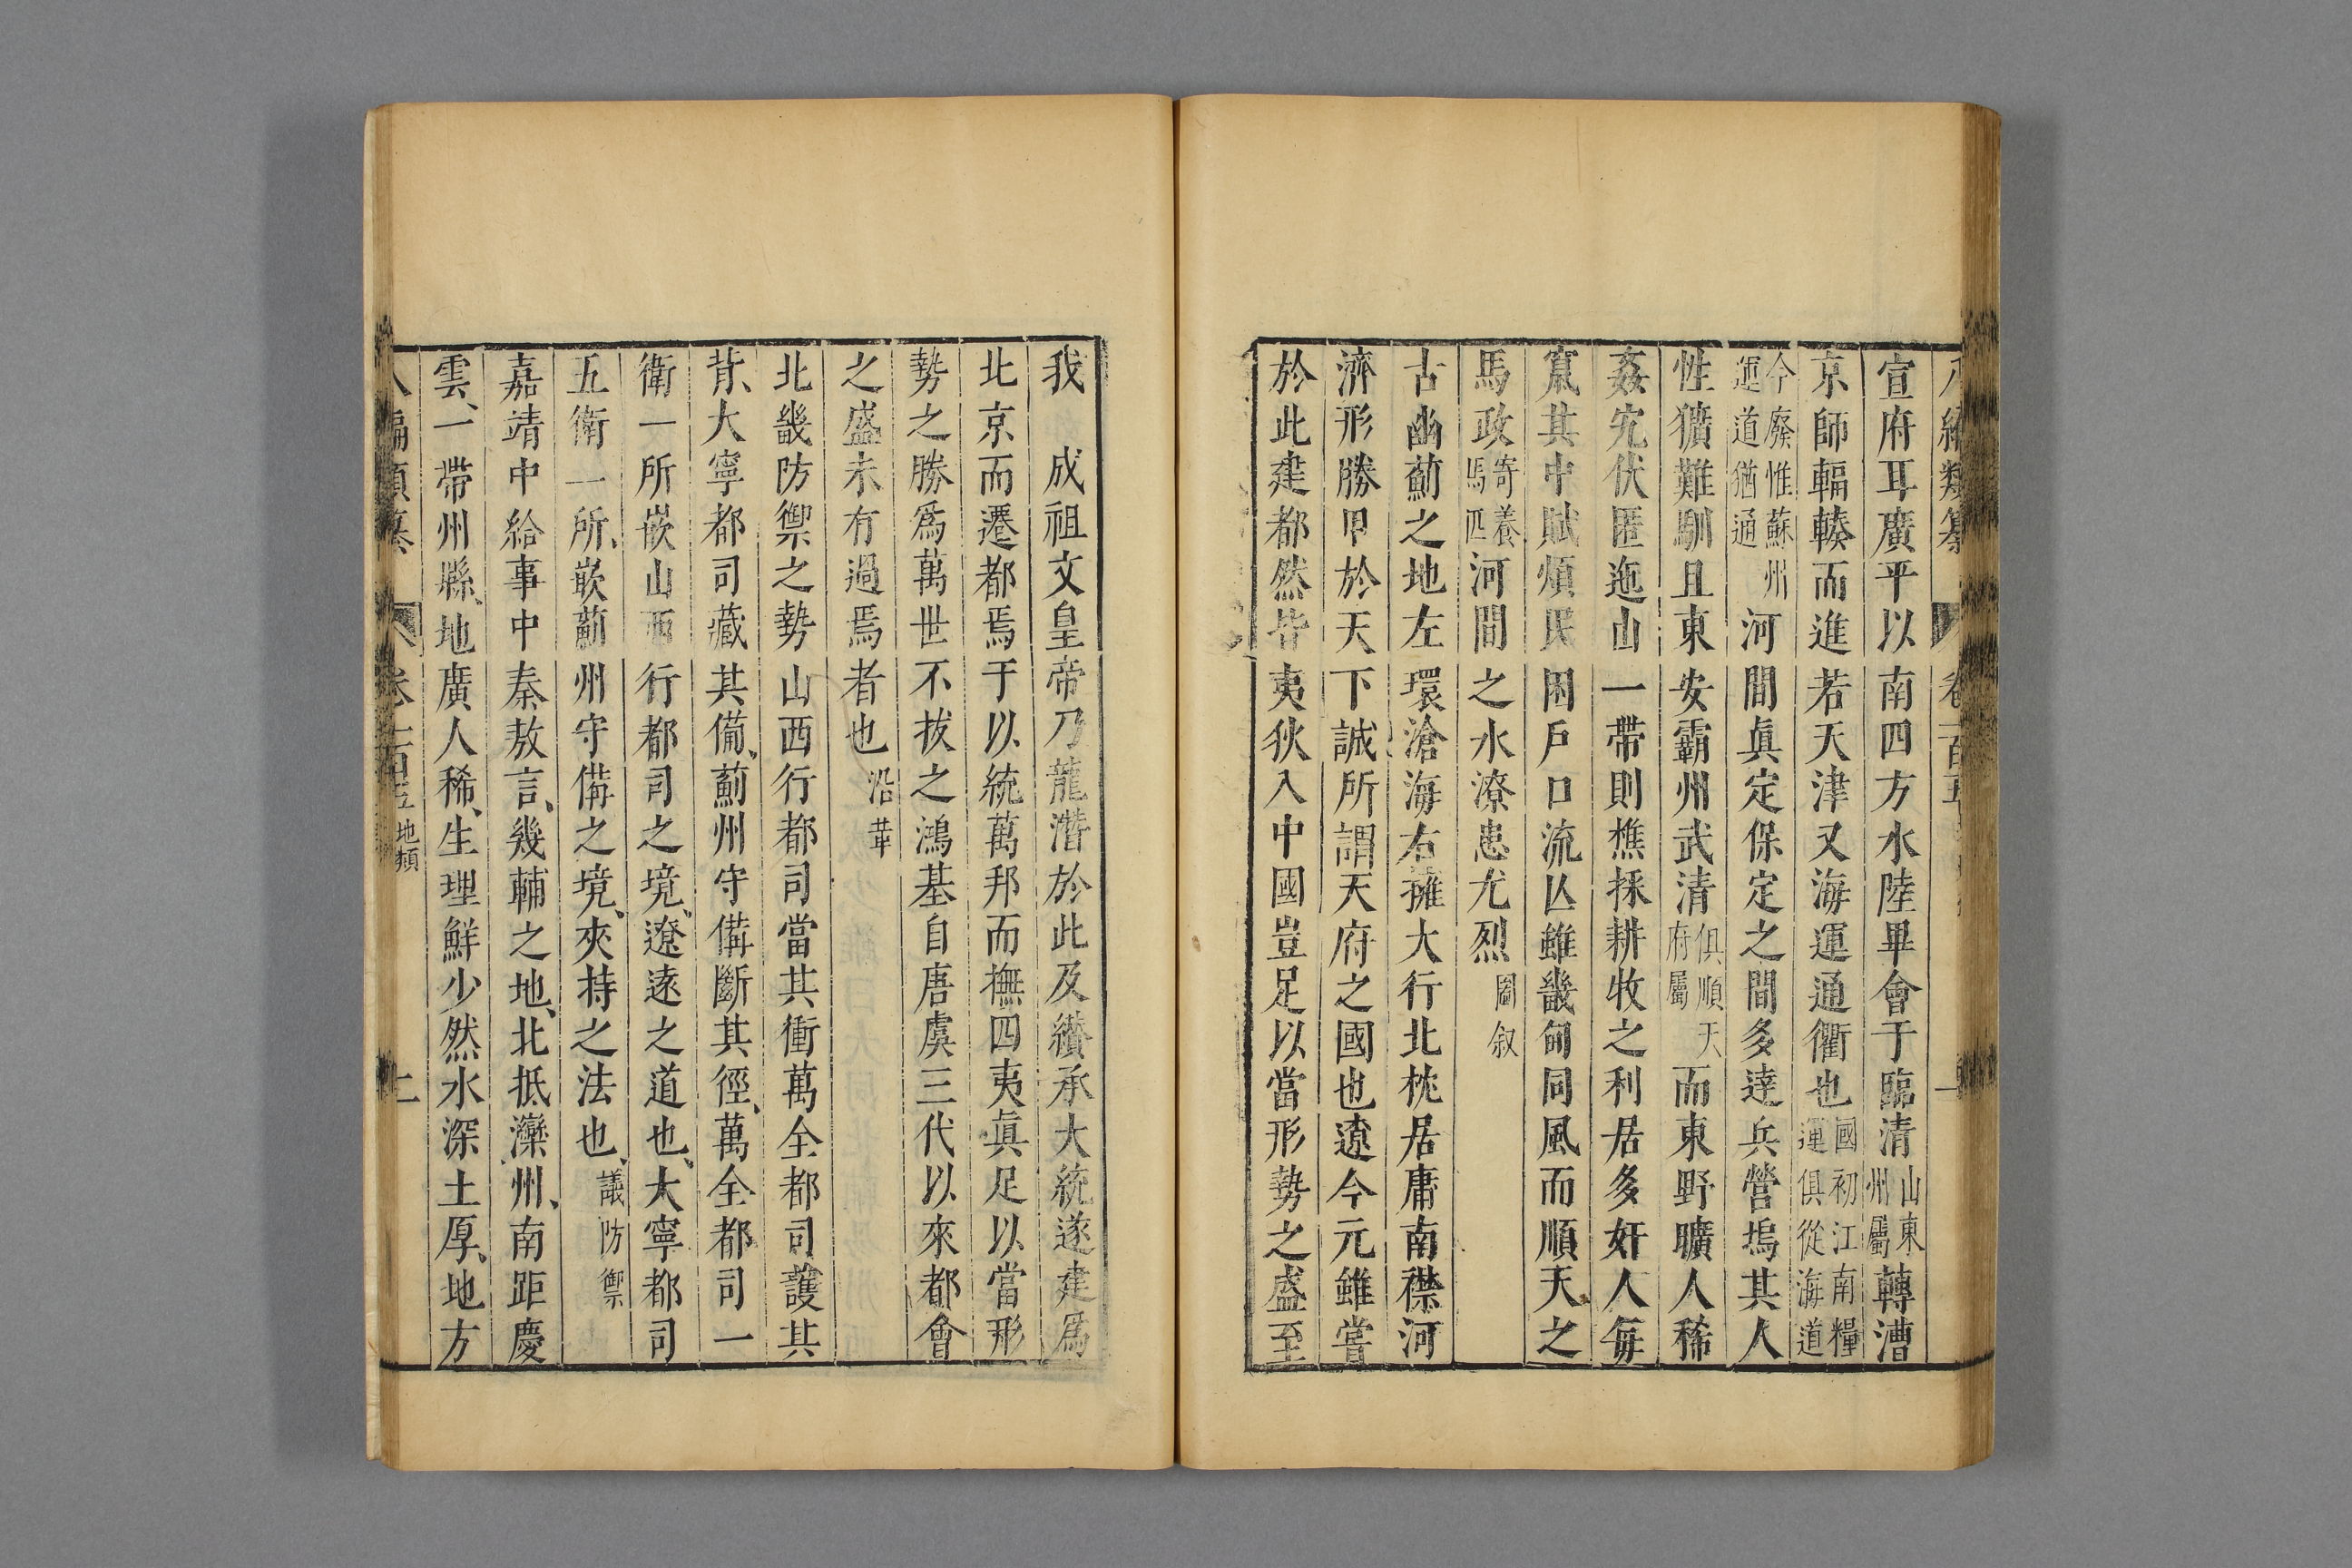 八編類纂 卷一百五
宣府耳廣平以南四方水陸畢會于臨清山東州屬轉漕
京師輻輳而進若天津又海運通衢也國初江南糧運俱從海道
今廢惟蘇州運道猶通河間眞定保定之間多達兵營塢其人
性獷難馴且東安霸州武清俱順天府屬而東野曠人稀
姦宄伏匿迤山一帶則樵採耕牧之利居多奸人每
窟其中賦煩民困戶口流亾雖畿甸同風而順天之
馬政寄養馬匹河間之水潦患尤烈圖叙
古幽薊之地左環滄海右擁大行北枕居庸南襟河
濟形勝甲於天下誠所謂天府之國也遼今元雖嘗
於此建都然皆夷狄入中國豈足以當形勢之盛至
我 成祖文皇帝乃龍潛於此及纘承大統遂建爲
北京而遷都焉于以統萬邦而撫四夷眞足以當形
勢之勝爲萬世不拔之鴻基自唐虞三代以來都會
之盛未有過焉者也沿革
北畿防禦之勢山西行都司當其衝萬全都司護其
背、大寧都司藏其備、薊州守備斷其徑、萬全都司一
衛一所嵌山西行都司之境、遼遠之道也、大寧都司
五衛一所、嵌薊州守備之境、夾持之法也、議防禦
嘉靖中給事中秦敖言、幾輔之地、北抵灤州、南距慶
雲、一帶州縣、地廣人稀、生理鮮少然水深土厚、地方
八編類纂 卷一百五 地類 二